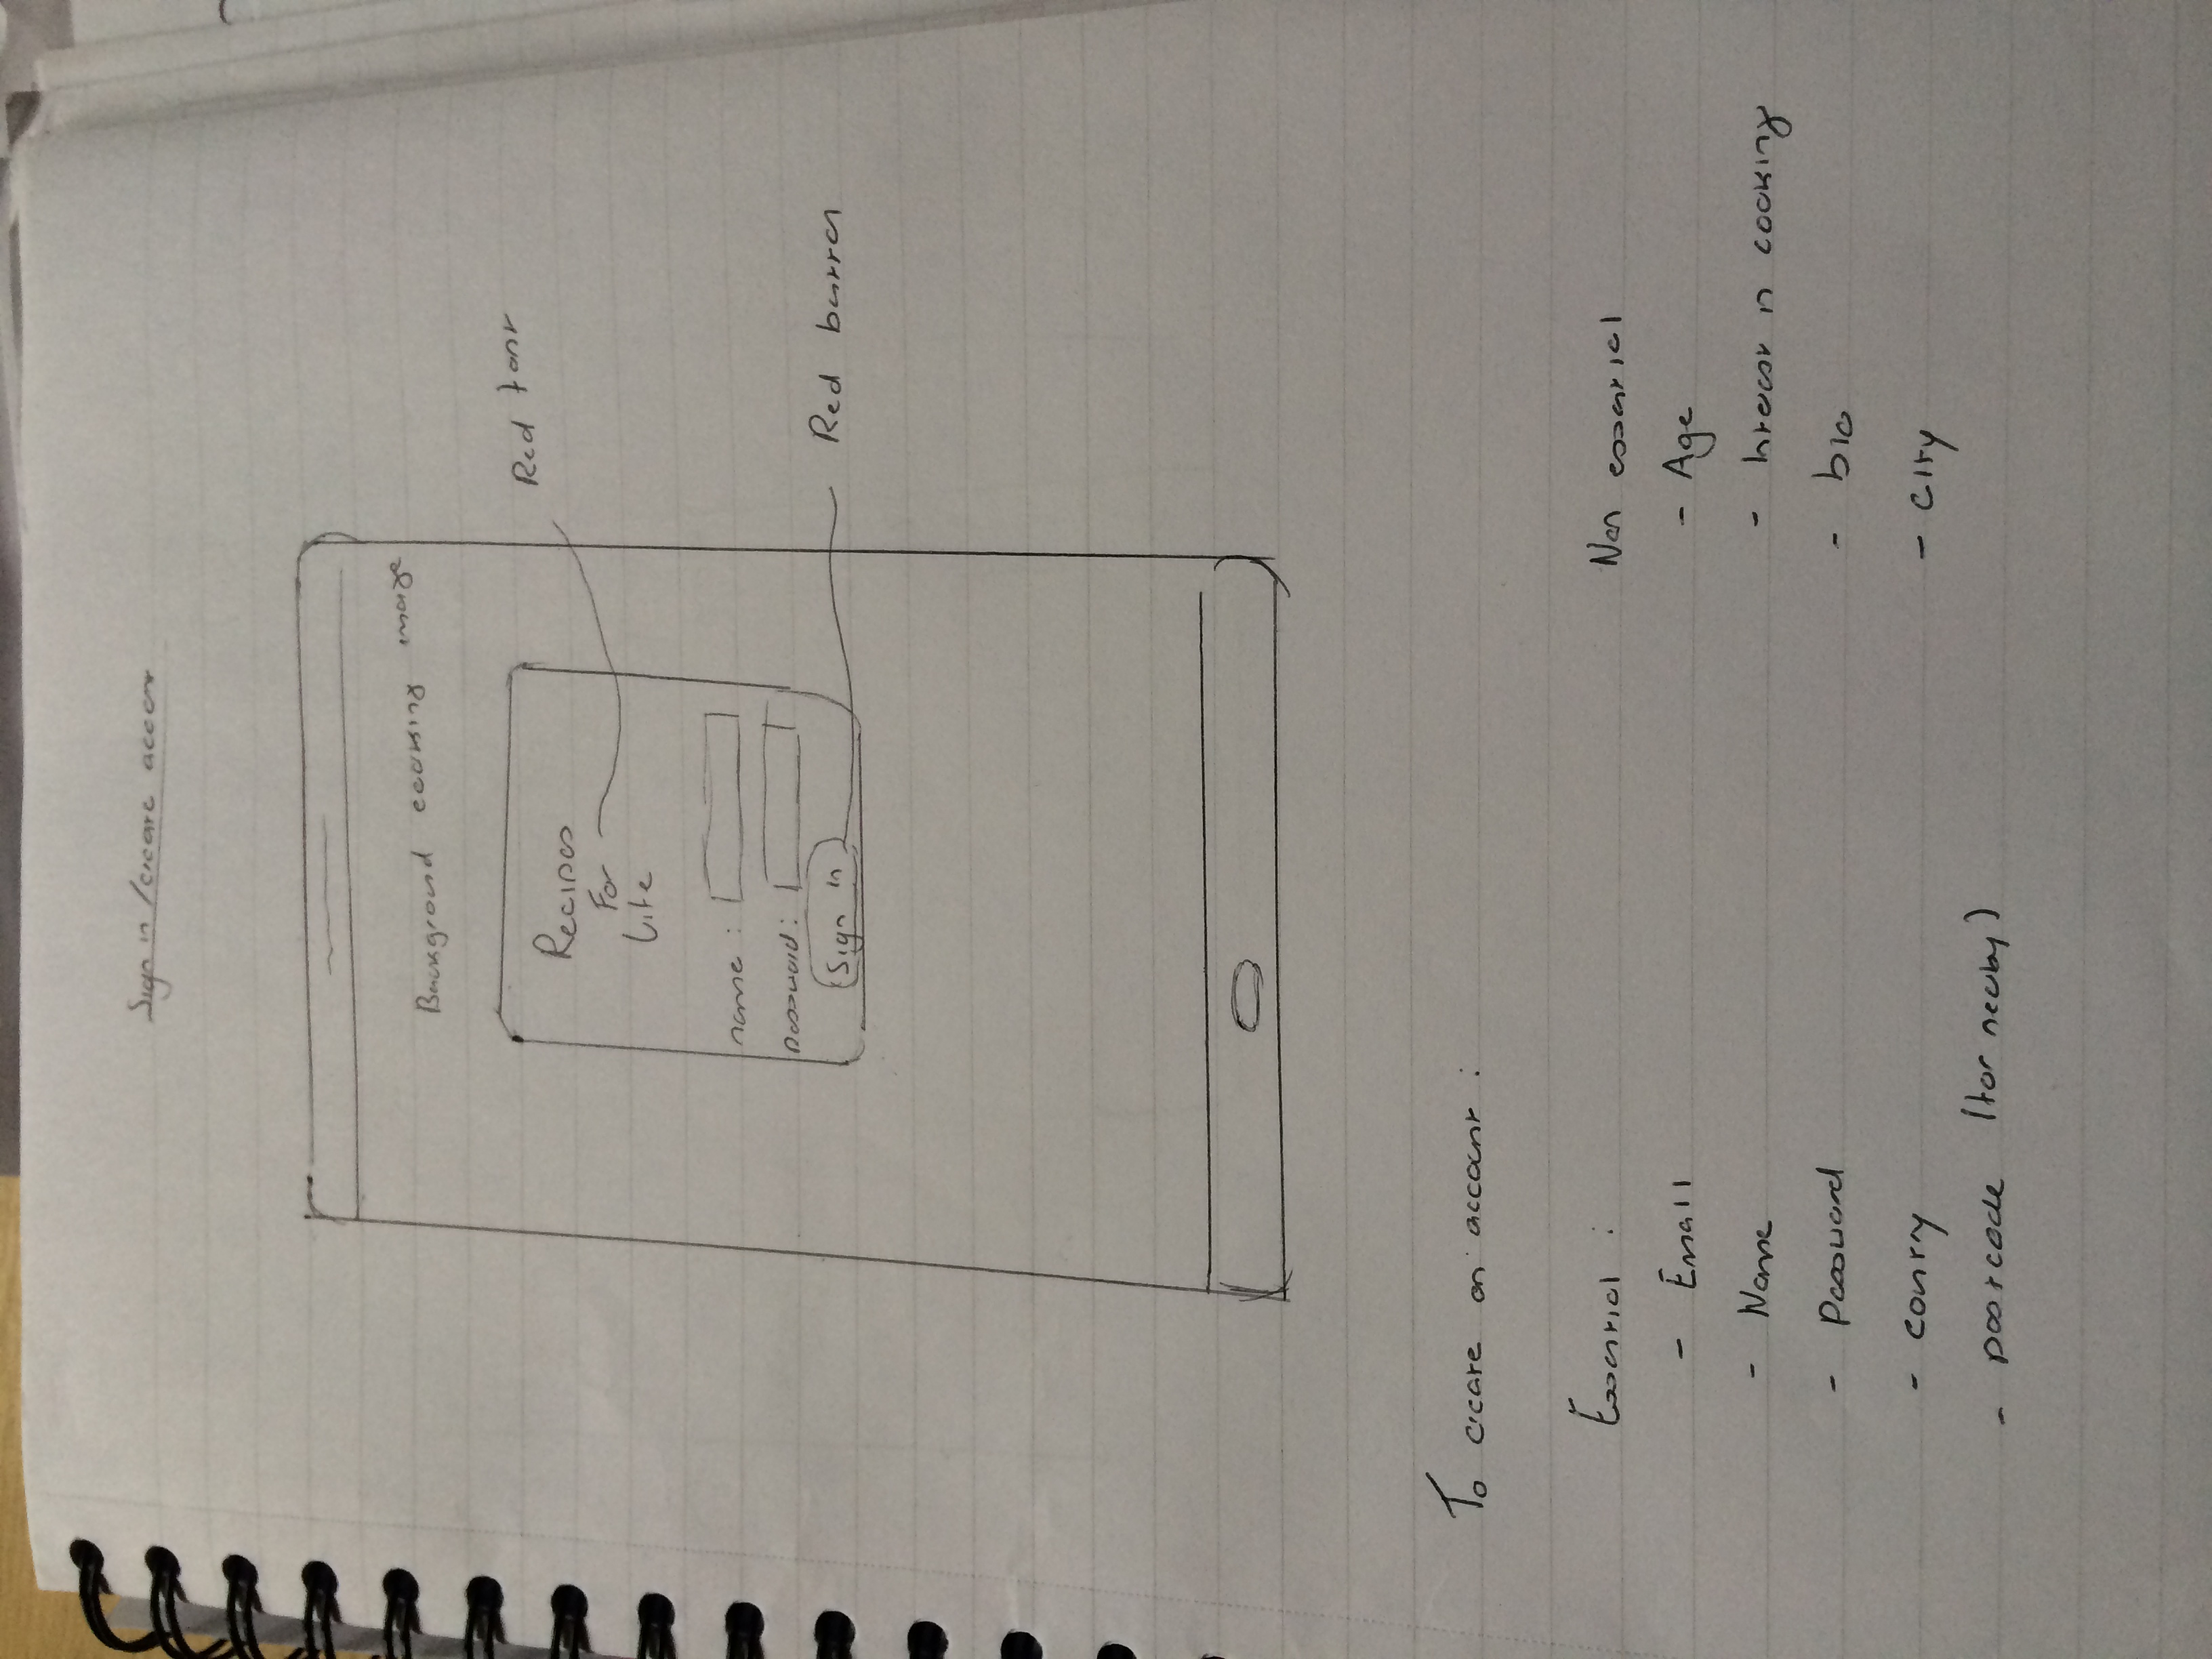 Sign in / create account
Background cooking image
Recipes
For
Life
Red font
name :
password :
Sign in
Red button
To create an account :
Essential :
- Email
- Name
- Password
- country
- postcode (for nearby)
Non essential
- Age
- Interest in cooking
- bio
- City